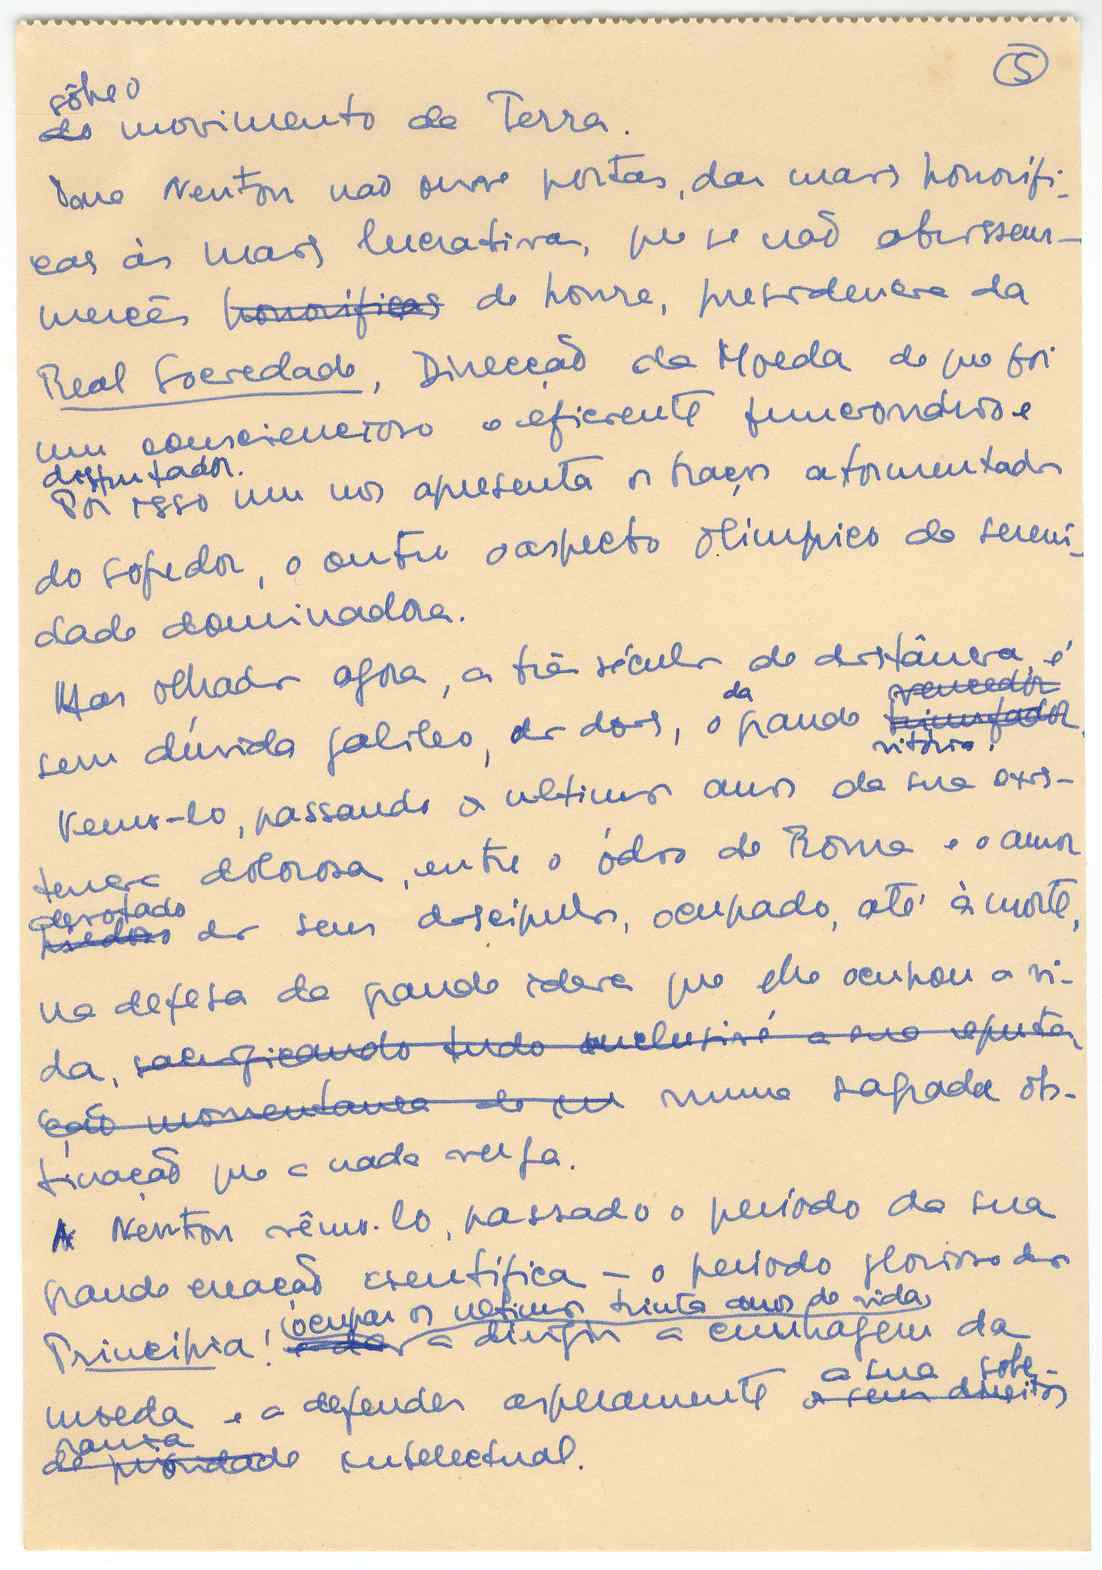 5
sôbre o
do movimento da Terra.
Para Newton não houve portas, das mais honorífi-
cas às mais lucrativas, que se não abrissem –
mercês honoríficas de honra, presidencia da
Real Sociedade, Direcção da Moeda de que foi
um consciencioso e eficiente funcionário e
disfrutador.
Por isso um nos apresenta os traços atormentados
do sofredor, o outro o aspecto olimpico de sereni-
dade dominadora.
Mas olhados agora, a três séculos de distância, é
vencedor
sem dúvida Galileo, dos dois, o da grande triunfador.
vitória.
Vemo-lo, passando os ultimos anos da sua exis-
tencia dolorosa, entre o ódio de Roma e o amor
devotado
dos seus discipulos, ocupado, até à morte,
na defesa da grande ideia que lhe ocupou a vi-
da, sacrificando tudo inclusivé a sua reputa
ção momentanea de numa sagrada obs-
tinação que a nada verga.
A Newton vêmo-lo, passado o periodo da sua
grande creação cientifica – o periodo glorioso dos
ocupar os ultimos trinta anos de vida,
Principia! a dirigir a cunhagem da
moeda e a defender asperamente os seus direitos
a sua sobe-
rania
de prioridade intelectual.